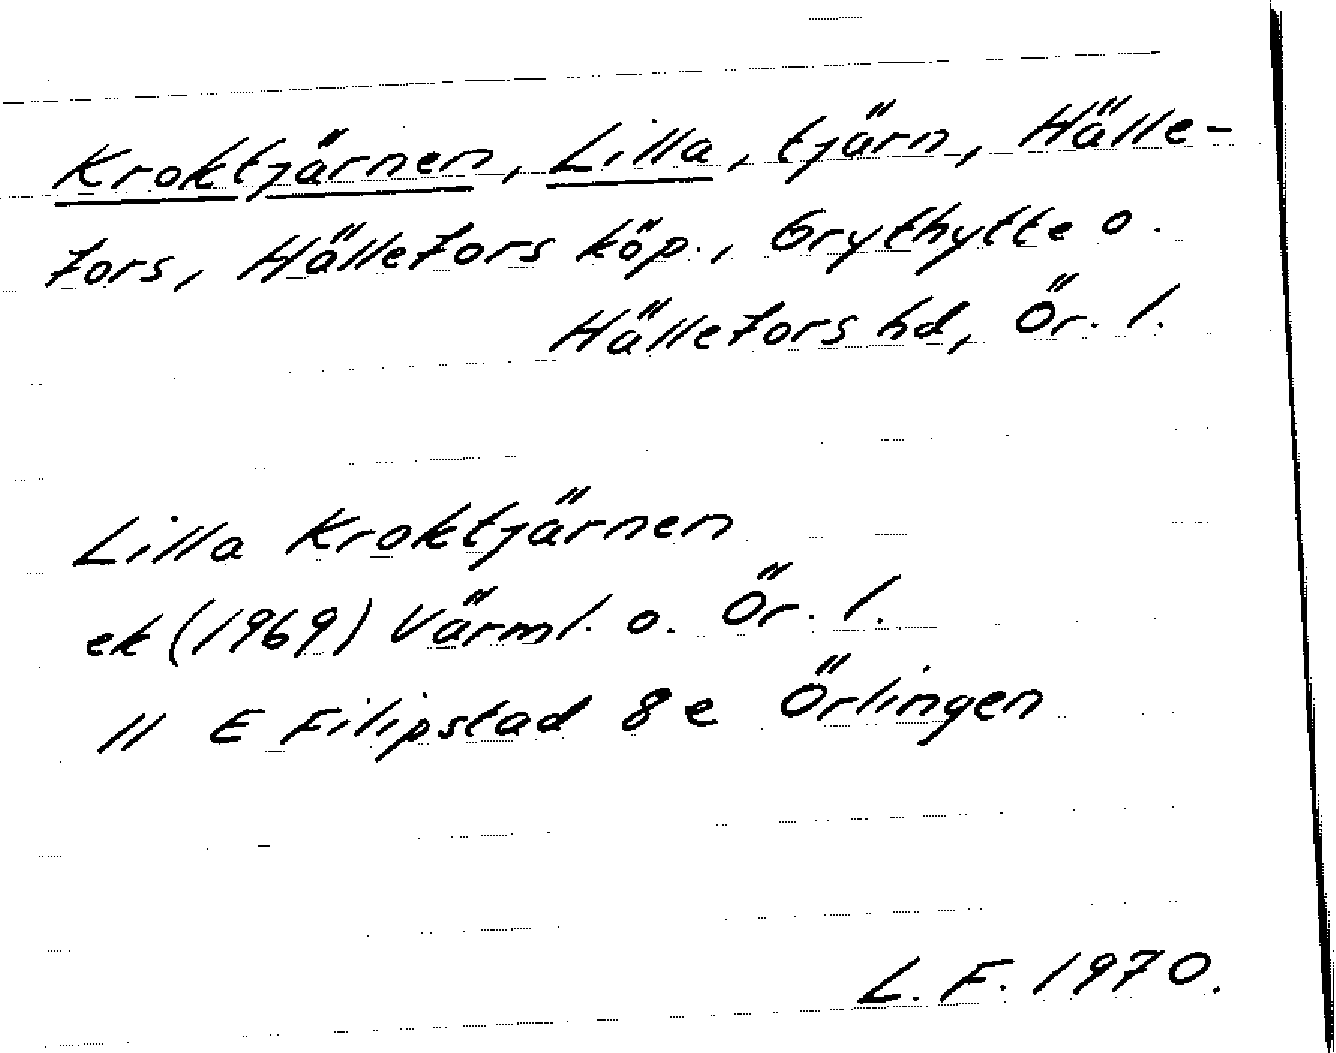 Kroktjärnen, Lilla, tjärn, Hälle-
fors, Hällefors köp., Grythytte o.
Hällefors hd, Ör. l.
Lilla Kroktjärnen
ek (1969) Värml. o. Ör. l.
11 E Filipstad 8 e Örlingen
L. F. 1970.